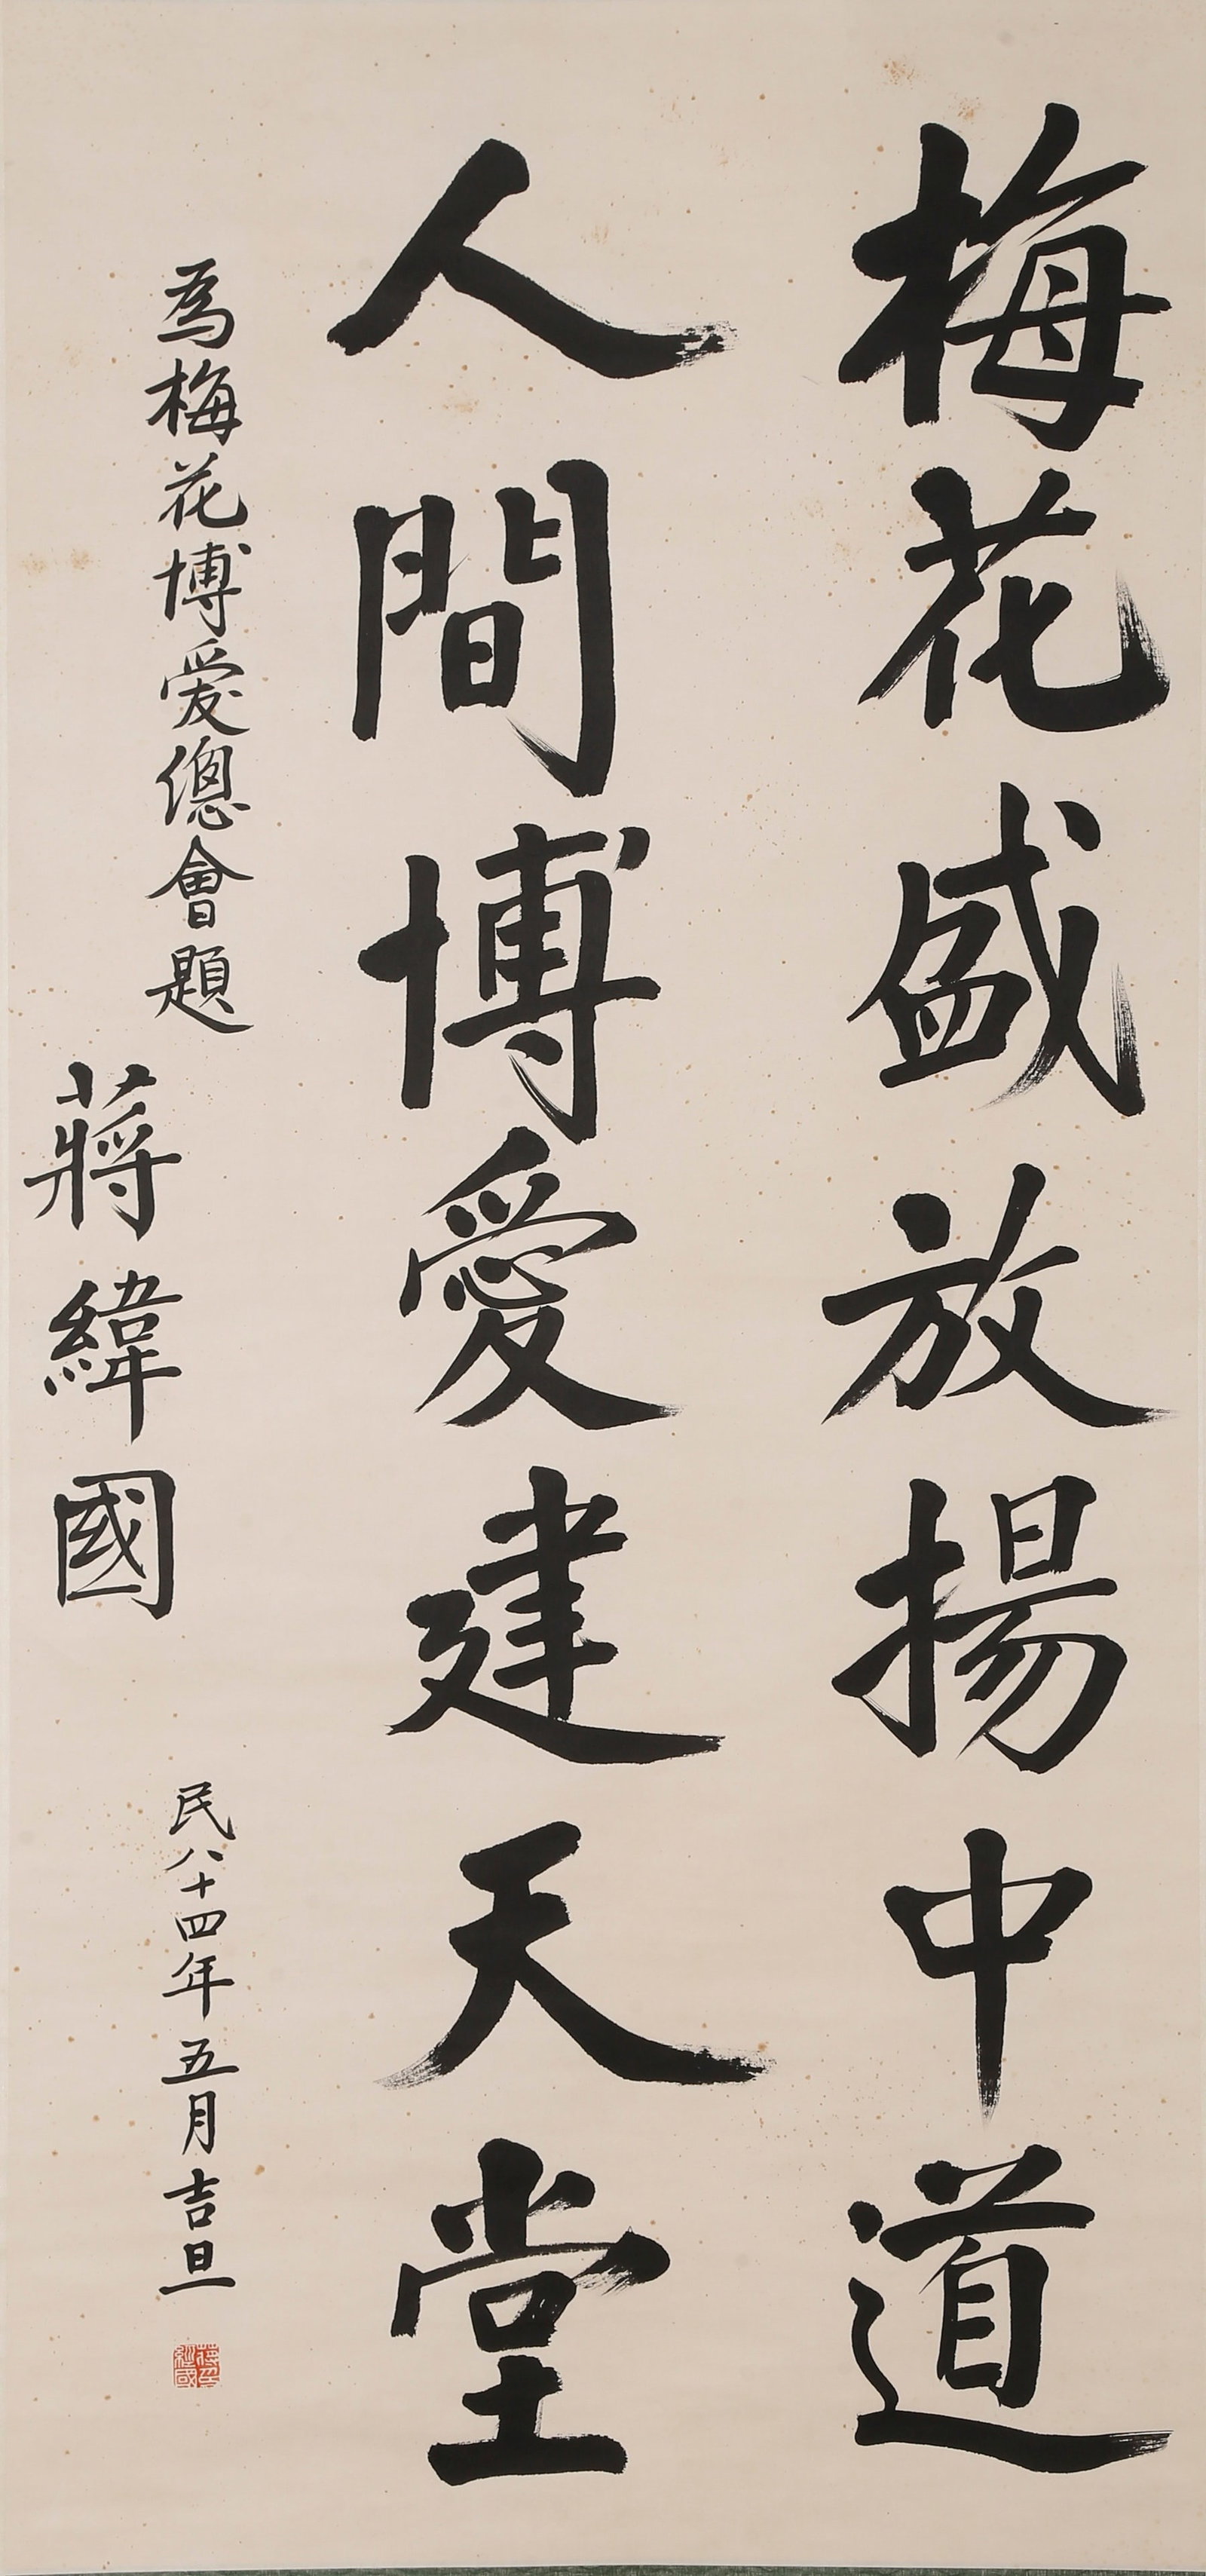 梅花盛放揚中道
人間博愛建天堂
為梅花博愛總會題
蔣緯國
民八十四年五月吉旦